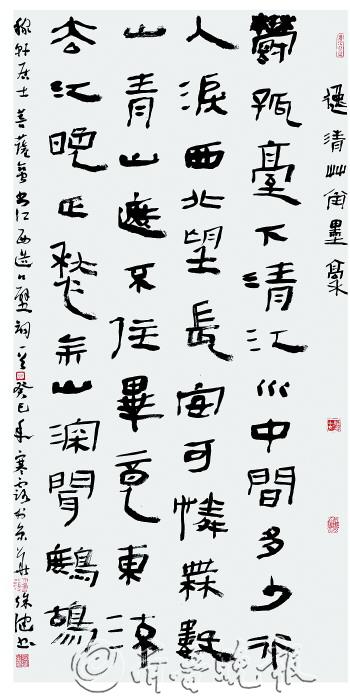 鬱孤臺下清江水中間多少行
人淚西北望長安可憐無數
山青山遮不住畢竟東流
去江晚正愁余山深聞鷓鴣
稼軒居士菩薩蠻書江西造口壁詞一首 癸巳年寒露於京華
齐鲁晚报